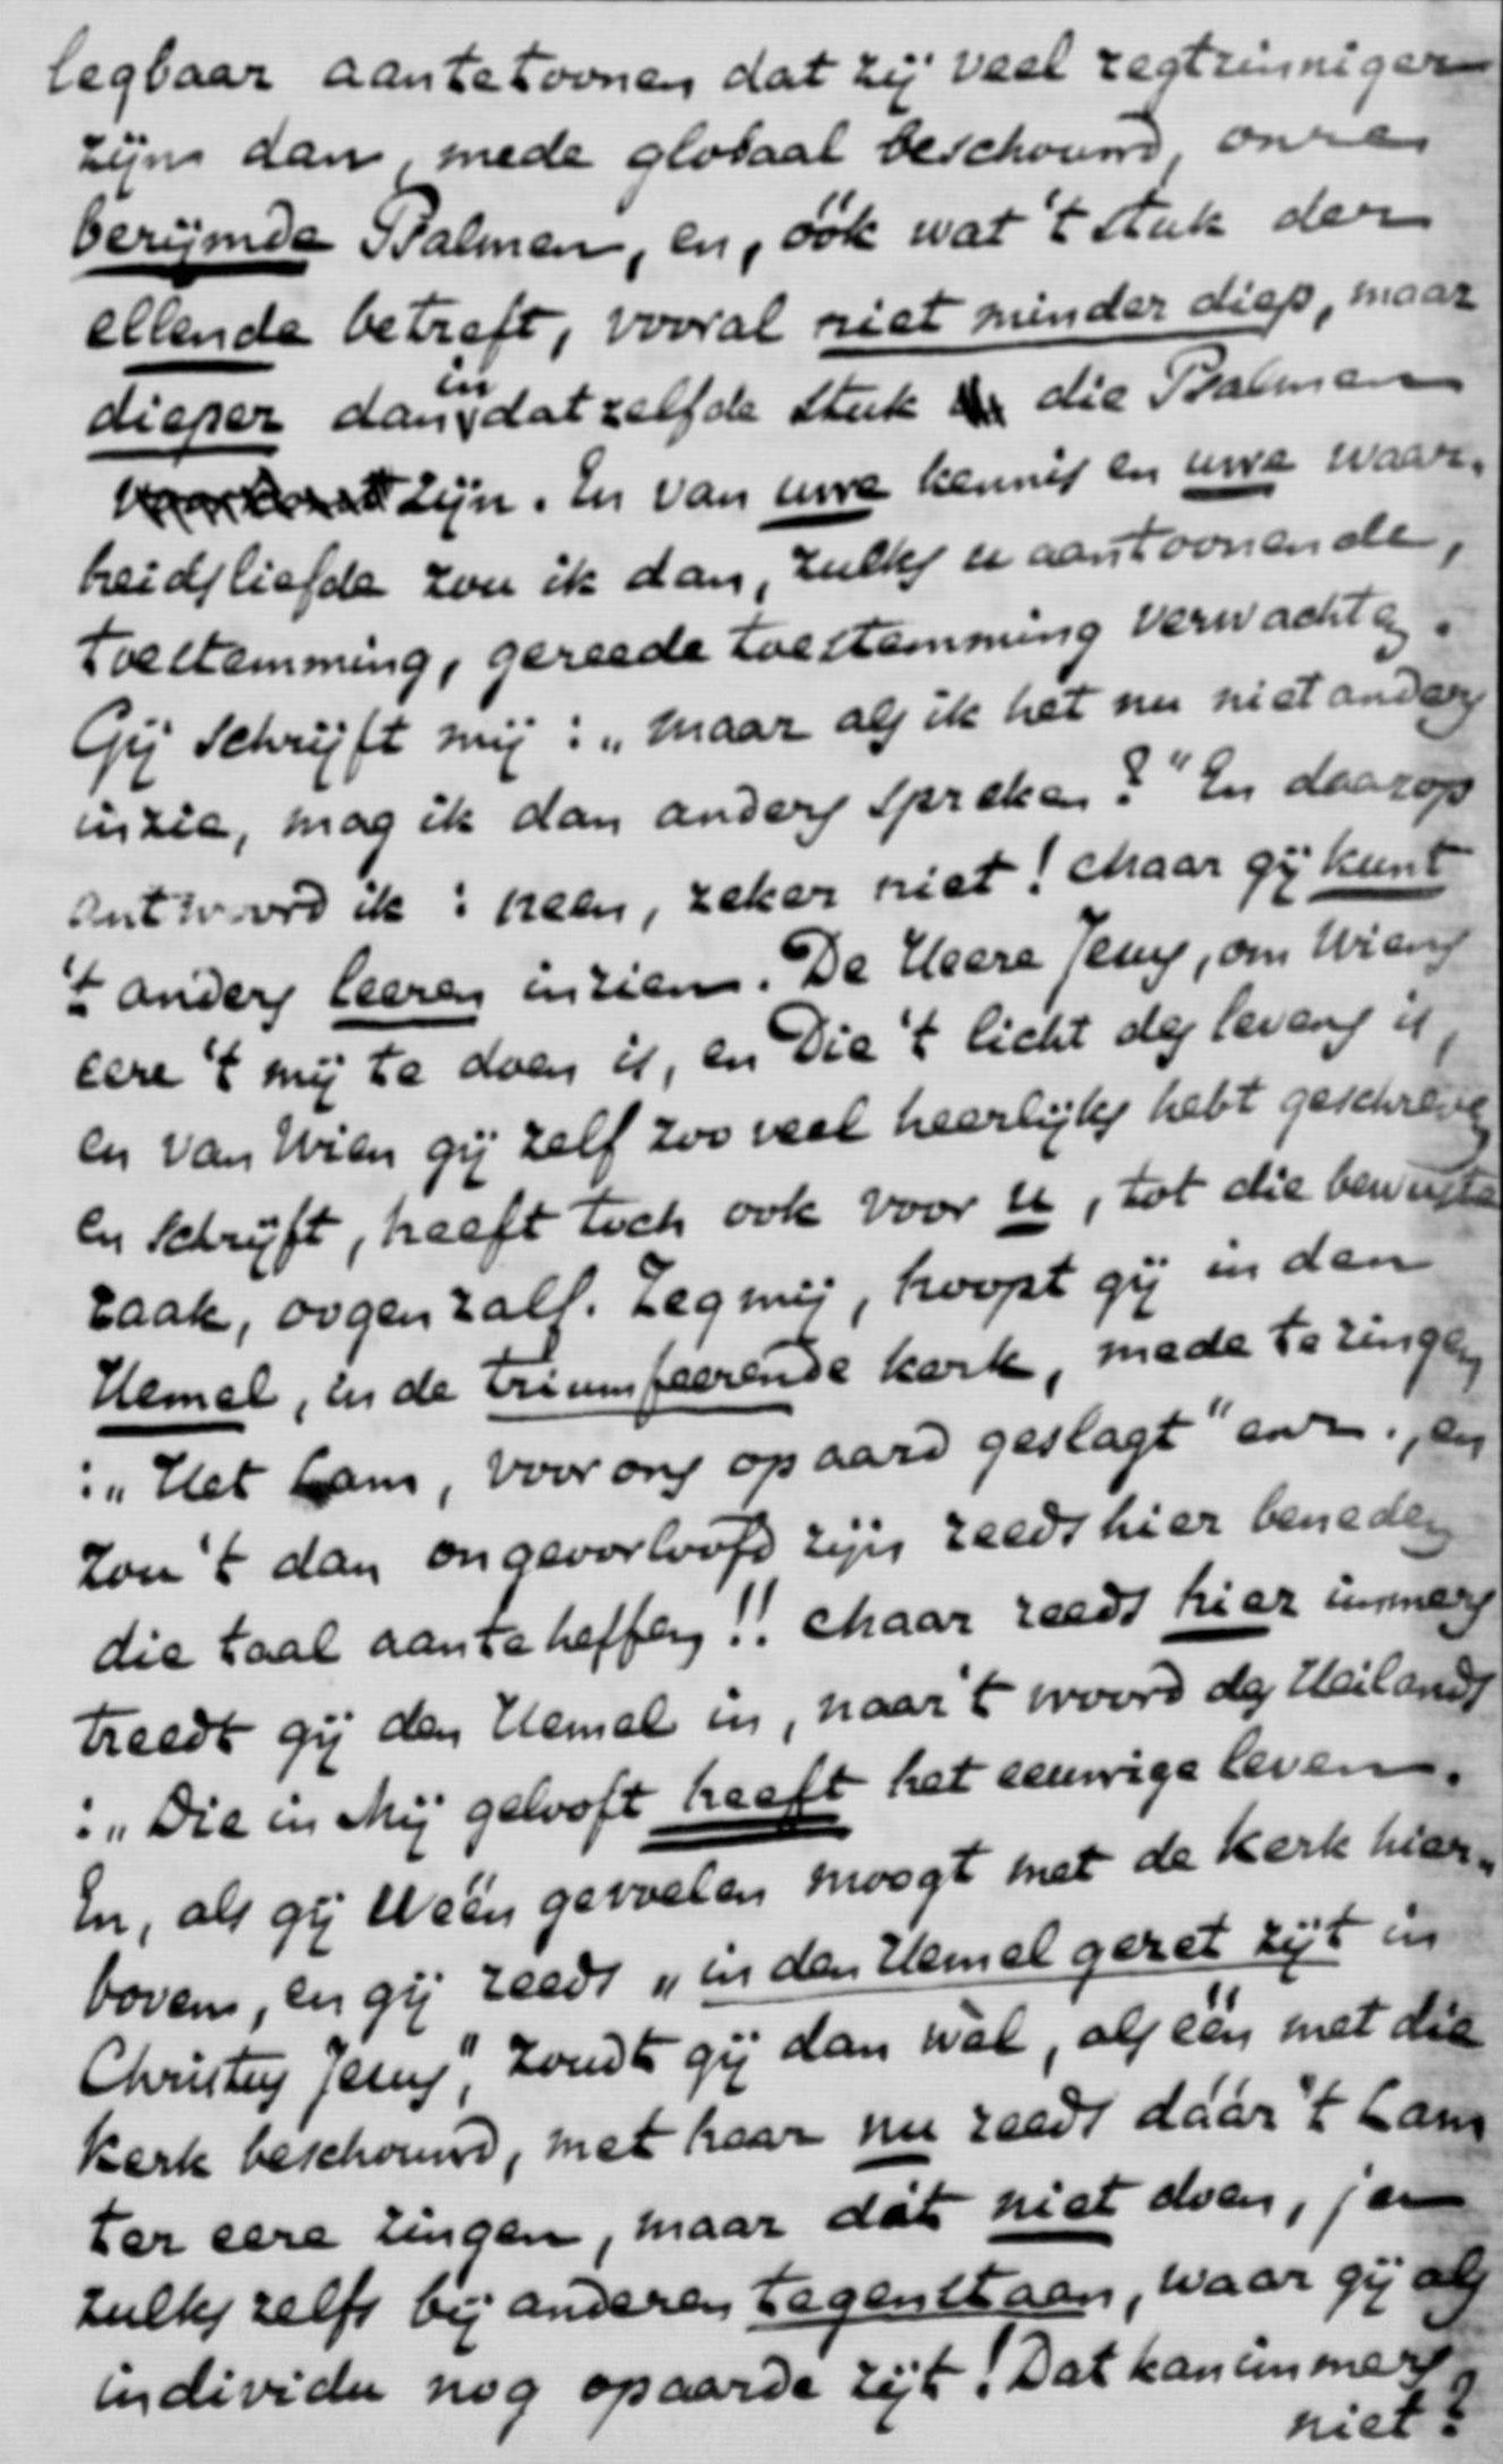 legbaar aantetoonen dat zij veel regtzinniger
zijn dan, mede globaal beschouwd, onze
berijmde Psalmen, en, óók wat 't stuk der
ellende betreft, vooral niet minder diep, maar
dieper dan in datzelfde stuk die Psalmen
zijn. En van uwe kennis en uwe waar-
heidsliefde zou ik dan, zulks u aantoonende,
toestemming, gereede toestemming verwachten.
Gij schrijft mij: „maar als ik het nu niet anders
inzie, mag ik dan anders spreken?" En daarop
antwoord ik: neen, zeker niet! Maar gij kunt
't anders leeren inzien. De Heere Jesus, om Wiens
eere 't mij te doen is, en Die 't licht des levens is,
en van Wien gij zelf zoo veel heerlijks hebt geschreven
en schrijft, heeft toch ook voor u, tot die bewuste
zaak, oogenzalf. Zeg mij, hoopt gij in den
Hemel, in de triumfeerende kerk, mede te zingen
:„Het Lam, voor ons op aard geslagt" enz., en
zou 't dan ongeoorloofd zijn reeds hier beneden
die taal aanteheffen!! Maar reeds hier immers
treedt gij den Hemel in, naar 't woord des Heilands
:„Die in Mij gelooft heeft het eeuwige leven.
En, als gij U één gevoelen moogt met de Kerk hier-
boven, en gij reeds „in den Hemel gezet zijt in
Christus Jesus", zoudt gij dan wèl, als één met die
Kerk beschouwd, met haar nu reeds dáár 't Lam
ter eere zingen, maar dát niet doen, ja
zulks zelfs bij anderen tegenstaan, waar gij als
individu nog op aarde zijt! Dat kan immers
niet?